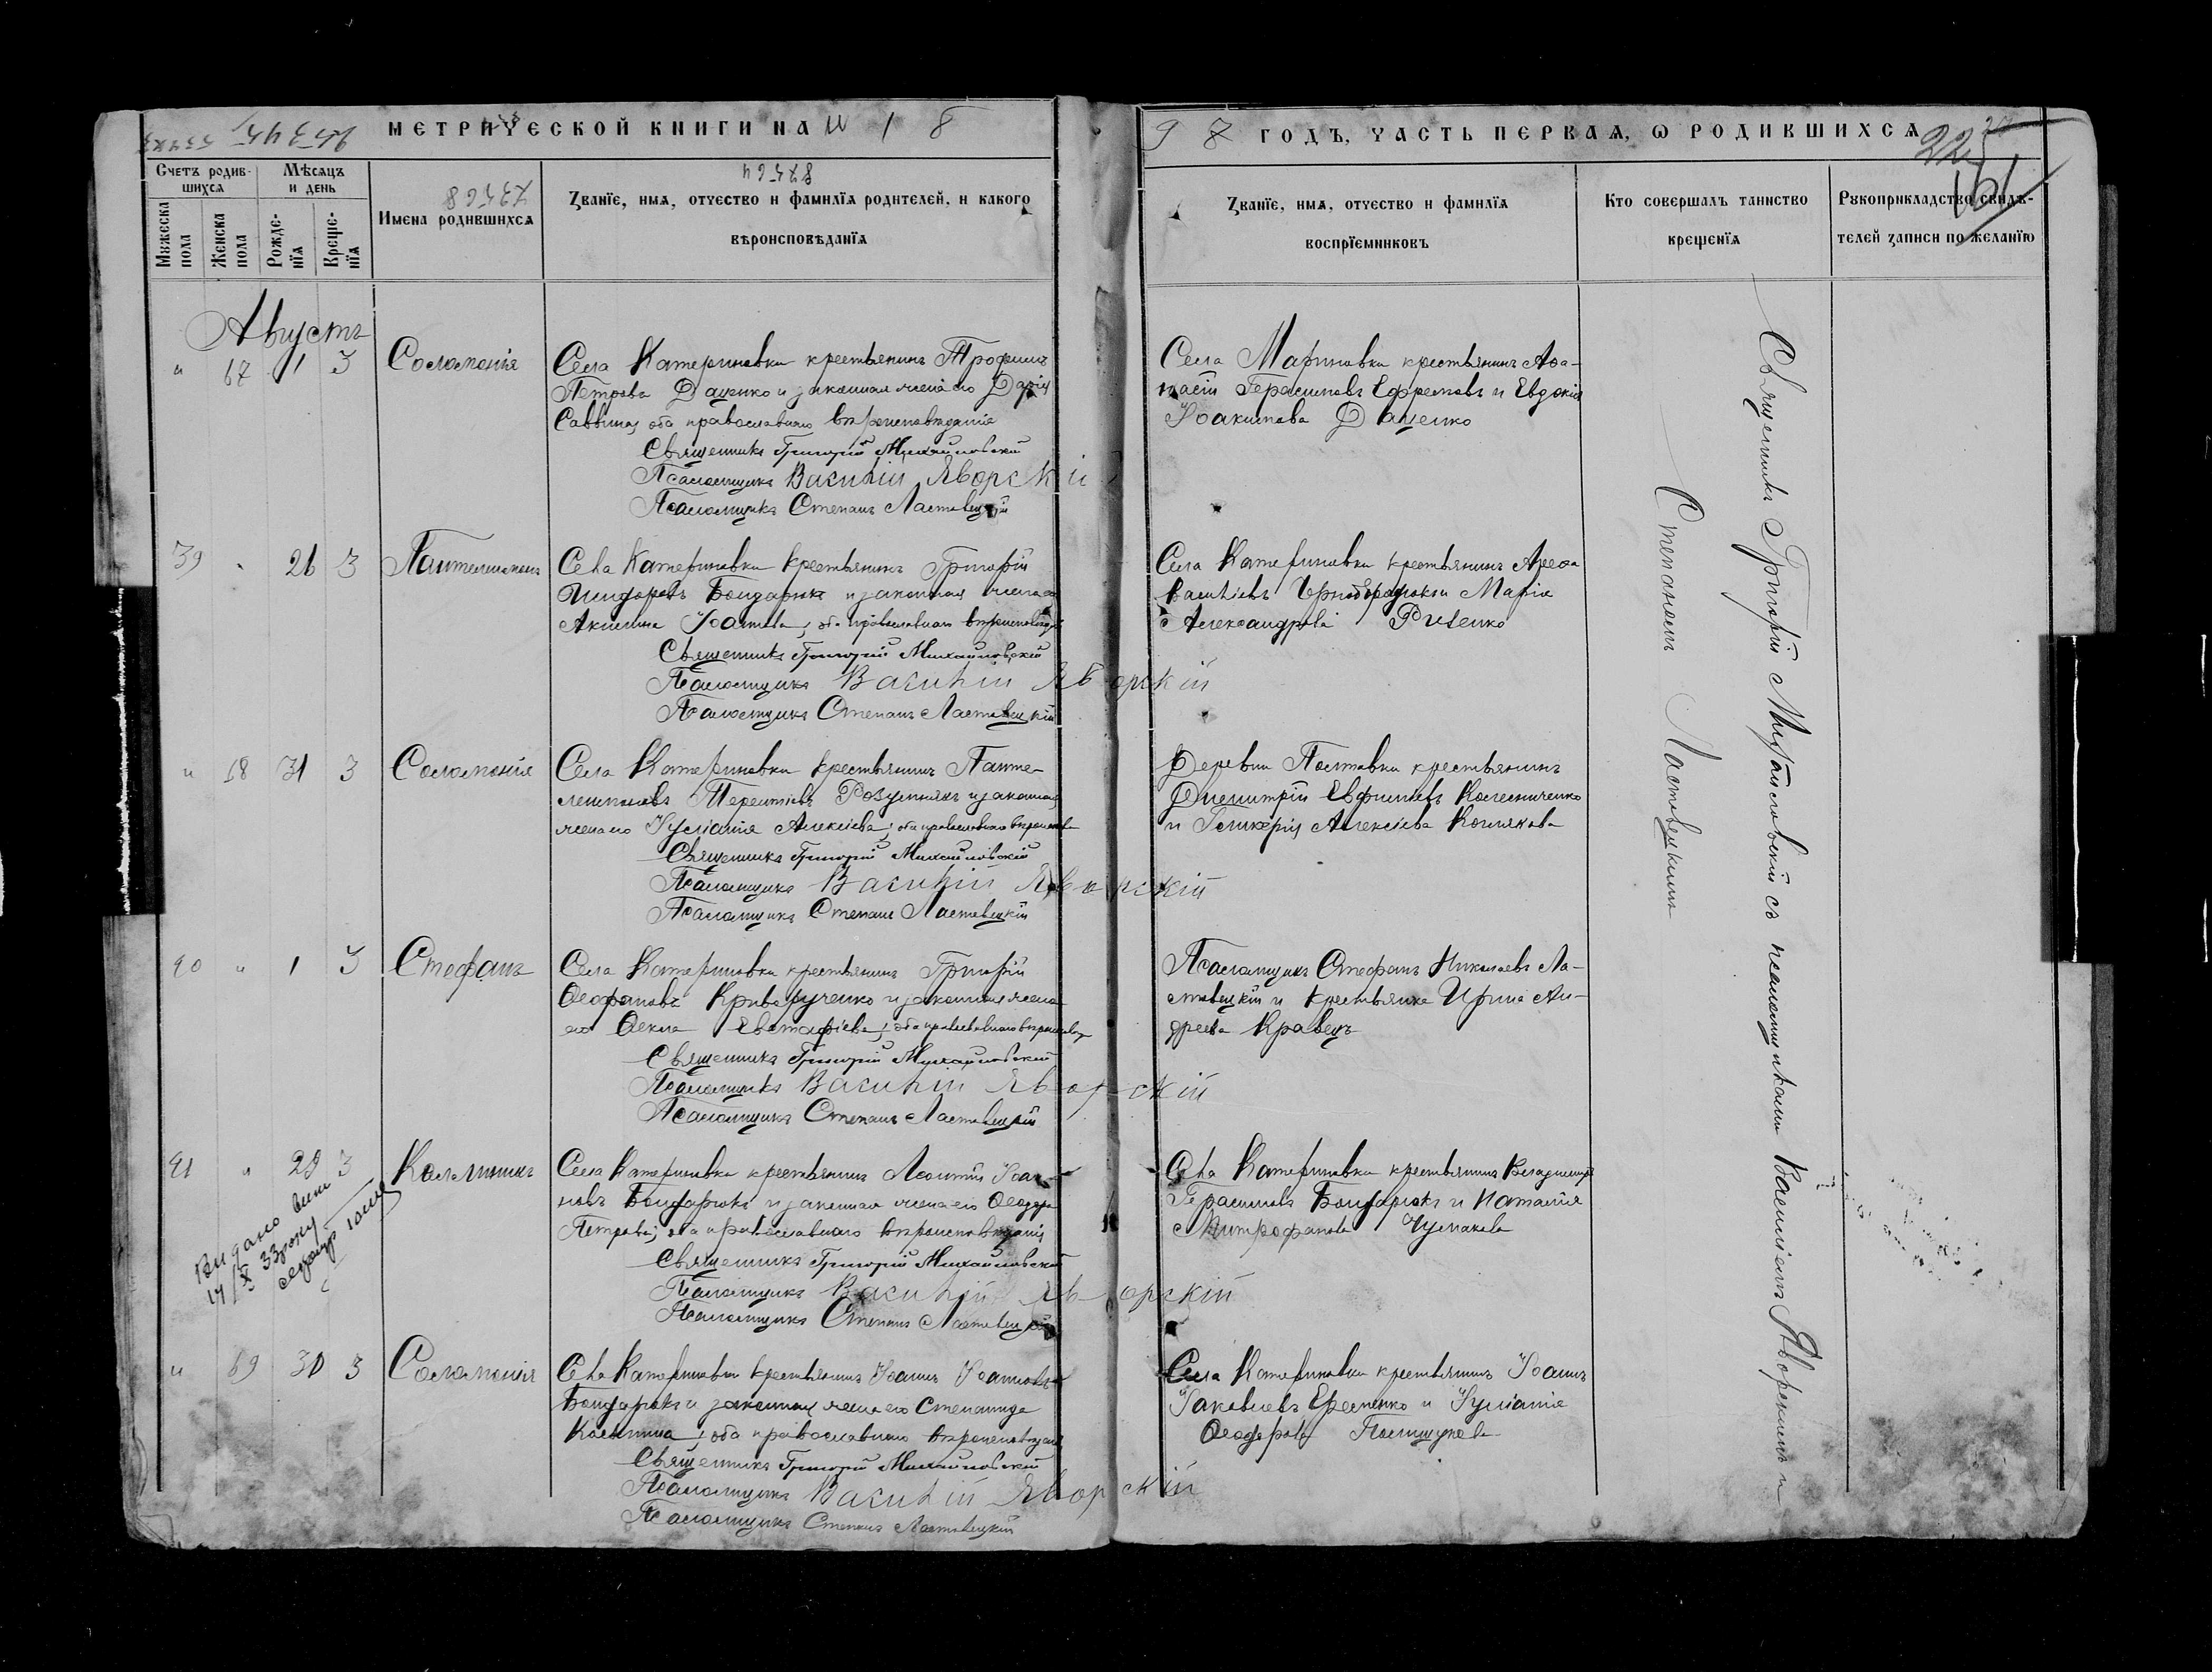 МЕТРИЧЕСКОЙ КНИГИ НА 18
97 ГОДЪ, ЧАСТЬ ПЕРВАЯ, О РОДИВШИХСЯ
225
161
87564
Счетъ родив-
шихся
Мѣсяцъ
и день
Мужеска пола
Женска пола
Рожде-
нія
Креще-
нія
Имена родившихся
Званіе, имя, отчество и фамилія родителей, и какого
вѣроисповѣданія
Званіе, имя, отчество и фамилія
воспріемниковъ
Кто совершалъ таинство
крещенія
Рукоприкладство свидѣ-
телей записи по желанію
Августъ
" 67 1 3 Соломонія
Села Катериновки крестьянинъ Трофимъ
Петровъ Даценко и законная жена его Дарія
Саввина, оба православнаго вѣроисповѣданія
Священникъ Григорій Михайловскій
Псаломщикъ Василій Яворскій
Псаломщикъ Степанъ Ластовецкій
Села Мариновки крестьянинъ Аѳа-
насій Герасимовъ Ефремовъ и Евдокія
Іоакимова Даценко
39 " 26 3 Пантелеимонъ
Села Катериновки крестьянинъ Григорій
Исидоровъ Бондарюкъ и законная жена его
Акилина Іоаннова, оба православнаго вѣроисповѣд
Священникъ Григорій Михайловскій
Псаломщикъ Василій Яворскій
Псаломщикъ Степанъ Ластовецкій
Села Катериновки крестьянинъ
Васильевъ и Марія
Александрова
" 68 31 3 Соломонія
Села Катериновки крестьянинъ Панте-
леимоновъ Терентіевъ и законная
жена его Іуліанія Алексіева, оба православнаго
Священникъ Григорій Михайловскій
Псаломщикъ Василій Яворскій
Псаломщикъ Степанъ Ластовецкій
Деревни крестьянинъ
Димитрій Евфиміевъ Колесниченко
и Гликерія Алексіева
40 " 1 3 Стефанъ
Села Катериновки крестьянинъ Григорій
Ѳеофановъ Криворученко и законная жена
его Ѳекла Евстафіева, оба православнаго
Священникъ Григорій Михайловскій
Псаломщикъ Василій Яворскій
Псаломщикъ Степанъ Ластовецкій
Псаломщикъ Стефанъ Николаевъ Ла-
стовецкій и крестьянка Ирина Ан-
дреева Кравецъ
41 " 29 3 Каллиникъ
Видано
14/X 33 року
Села Катериновки крестьянинъ Леонтій Іоан-
новъ Бондарюкъ и законная жена его Ѳеодора
Петрова, оба православнаго вѣроисповѣданія
Священникъ Григорій Михайловскій
Псаломщикъ Василій Яворскій
Псаломщикъ Степанъ Ластовецкій
Села Катериновки крестьянинъ Владиміръ
Герасимовъ Бондарюкъ и Наталія
Митрофанова Чумакова
" 69 30 3 Соломонія
Села Катериновки крестьянинъ Іоаннъ Іоанновъ
Бондарюкъ и законная жена его Степанида
оба православнаго вѣроисповѣданія
Священникъ Григорій Михайловскій
Псаломщикъ Василій Яворскій
Псаломщикъ Степанъ Ластовецкій
Села Катериновки крестьянинъ Іоаннъ
Іаковлевъ Еременко и Іуліанія
Ѳеодорова
Священникъ Григорій Михайловскій съ псаломщиками Василіемъ Яворскимъ и
Степаномъ Ластовецкимъ